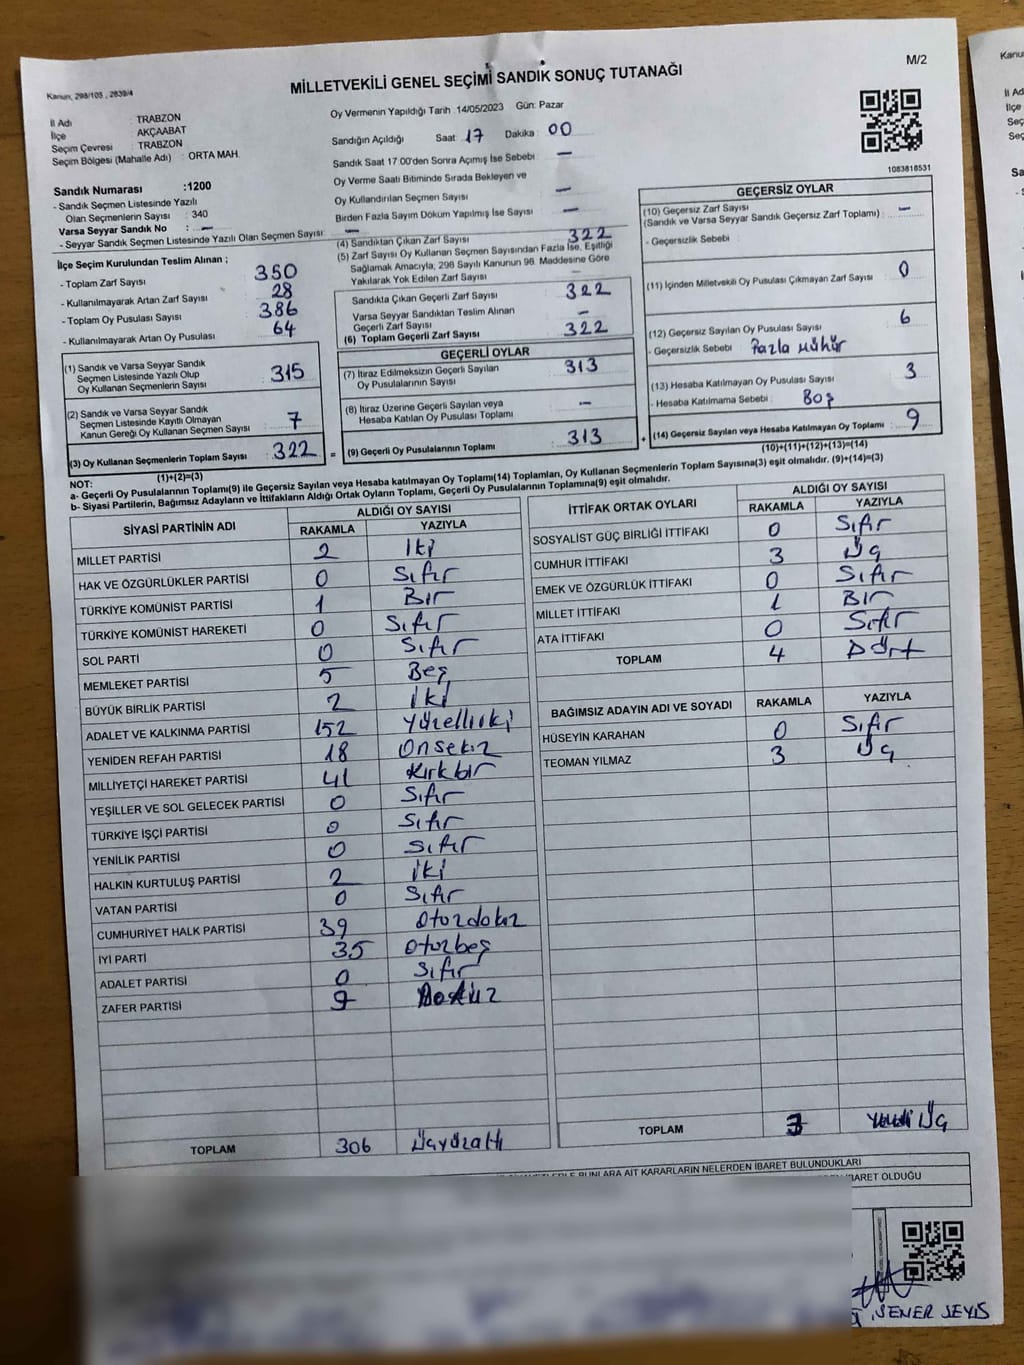 Kanun, 298/105 , 2839/4
M/2
MİLLETVEKİLİ GENEL SEÇİMİ SANDIK SONUÇ TUTANAĞI
İl Adı : TRABZON
İlçe : AKÇAABAT
Seçim Çevresi : TRABZON
Seçim Bölgesi (Mahalle Adı) : ORTA MAH.
Oy Vermenin Yapıldığı Tarih 14/05/2023 Gün: Pazar
Sandığın Açıldığı Saat: 17 Dakika : 00
Sandık Saat 17.00'den Sonra Açımış İse Sebebi : —
Oy Verme Saati Bitiminde Sırada Bekleyen ve
Oy Kullandırılan Seçmen Sayısı : —
Birden Fazla Sayım Döküm Yapılmış İse Sayısı : —
1083818531
Sandık Numarası :1200
- Sandık Seçmen Listesinde Yazılı
Olan Seçmenlerin Sayısı : 340
Varsa Seyyar Sandık No : —
- Seyyar Sandık Seçmen Listesinde Yazılı Olan Seçmen Sayısı : —
İlçe Seçim Kurulundan Teslim Alınan ;
- Toplam Zarf Sayısı : 350
- Kullanılmayarak Artan Zarf Sayısı : 28
- Toplam Oy Pusulası Sayısı : 386
- Kullanılmayarak Artan Oy Pusulası : 64
(1) Sandık ve Varsa Seyyar Sandık
Seçmen Listesinde Yazılı Olup
Oy Kullanan Seçmenlerin Sayısı : 315
(2) Sandık ve Varsa Seyyar Sandık
Seçmen Listesinde Kayıtlı Olmayan
Kanun Gereği Oy Kullanan Seçmen Sayısı : 7
(3) Oy Kullanan Seçmenlerin Toplam Sayısı : 322
(1)+(2)=(3)
(4) Sandıktan Çıkan Zarf Sayısı : 322
(5) Zarf Sayısı Oy Kullanan Seçmen Sayısından Fazla İse, Eşitliği
Sağlamak Amacıyla, 298 Sayılı Kanunun 98. Maddesine Göre
Yakılarak Yok Edilen Zarf Sayısı : —
Sandıkta Çıkan Geçerli Zarf Sayısı : 322
Varsa Seyyar Sandıktan Teslim Alınan
Geçerli Zarf Sayısı : —
(6) Toplam Geçerli Zarf Sayısı : 322
GEÇERLİ OYLAR
(7) İtiraz Edilmeksizin Geçerli Sayılan
Oy Pusulalarının Sayısı : 313
(8) İtiraz Üzerine Geçerli Sayılan veya
Hesaba Katılan Oy Pusulası Toplamı : —
= (9) Geçerli Oy Pusulalarının Toplamı : 313 +
GEÇERSİZ OYLAR
(10) Geçersiz Zarf Sayısı
(Sandık ve Varsa Seyyar Sandık Geçersiz Zarf Toplamı) : —
- Geçersizlik Sebebi :
(11) İçinden Milletvekili Oy Pusulası Çıkmayan Zarf Sayısı : 0
(12) Geçersiz Sayılan Oy Pusulası Sayısı : 6
- Geçersizlik Sebebi : Fazla mühür
(13) Hesaba Katılmayan Oy Pusulası Sayısı : 3
- Hesaba Katılmama Sebebi : Boş
(14) Geçersiz Sayılan veya Hesaba Katılmayan Oy Toplamı : 9
(10)+(11)+(12)+(13)=(14)
NOT:
a- Geçerli Oy Pusulalarının Toplamı(9) ile Geçersiz Sayılan veya Hesaba katılmayan Oy Toplamı(14) Toplamları, Oy Kullanan Seçmenlerin Toplam Sayısına(3) eşit olmalıdır. (9)+(14)=(3)
b- Siyasi Partilerin, Bağımsız Adayların ve İttifakların Aldığı Ortak Oyların Toplamı, Geçerli Oy Pusulalarının Toplamına(9) eşit olmalıdır.
SİYASİ PARTİNİN ADI ALDIĞI OY SAYISI
RAKAMLA YAZIYLA
MİLLET PARTİSİ 2 İki
HAK VE ÖZGÜRLÜKLER PARTİSİ 0 Sıfır
TÜRKİYE KOMÜNİST PARTİSİ 1 Bir
TÜRKİYE KOMÜNİST HAREKETİ 0 Sıfır
SOL PARTİ 0 Sıfır
MEMLEKET PARTİSİ 5 Beş
BÜYÜK BİRLİK PARTİSİ 2 İki
ADALET VE KALKINMA PARTİSİ 152 Yüzelliiki
YENİDEN REFAH PARTİSİ 18 Onsekiz
MİLLİYETÇİ HAREKET PARTİSİ 41 Kırkbir
YEŞİLLER VE SOL GELECEK PARTİSİ 0 Sıfır
TÜRKİYE İŞÇİ PARTİSİ 0 Sıfır
YENİLİK PARTİSİ 0 Sıfır
HALKIN KURTULUŞ PARTİSİ 2 İki
VATAN PARTİSİ 0 Sıfır
CUMHURİYET HALK PARTİSİ 39 Otuzdokuz
İYİ PARTİ 35 Otuzbeş
ADALET PARTİSİ 0 Sıfır
ZAFER PARTİSİ 9 Dokuz
TOPLAM 306 Üçyüzaltı
İTTİFAK ORTAK OYLARI ALDIĞI OY SAYISI
RAKAMLA YAZIYLA
SOSYALİST GÜÇ BİRLİĞİ İTTİFAKI 0 Sıfır
CUMHUR İTTİFAKI 3 Üç
EMEK VE ÖZGÜRLÜK İTTİFAKI 0 Sıfır
MİLLET İTTİFAKI 1 Bir
ATA İTTİFAKI 0 Sıfır
TOPLAM 4 Dört
BAĞIMSIZ ADAYIN ADI VE SOYADI RAKAMLA YAZIYLA
HÜSEYİN KARAHAN 0 Sıfır
TEOMAN YILMAZ 3 Üç
TOPLAM 3 Üç
BUNLARA AİT KARARLARIN NELERDEN İBARET BULUNDUKLARI
İBARET OLDUĞU
ŞENER SEYİS
Kanu
İl Ad
İlçe
Seç
Seç
Sa